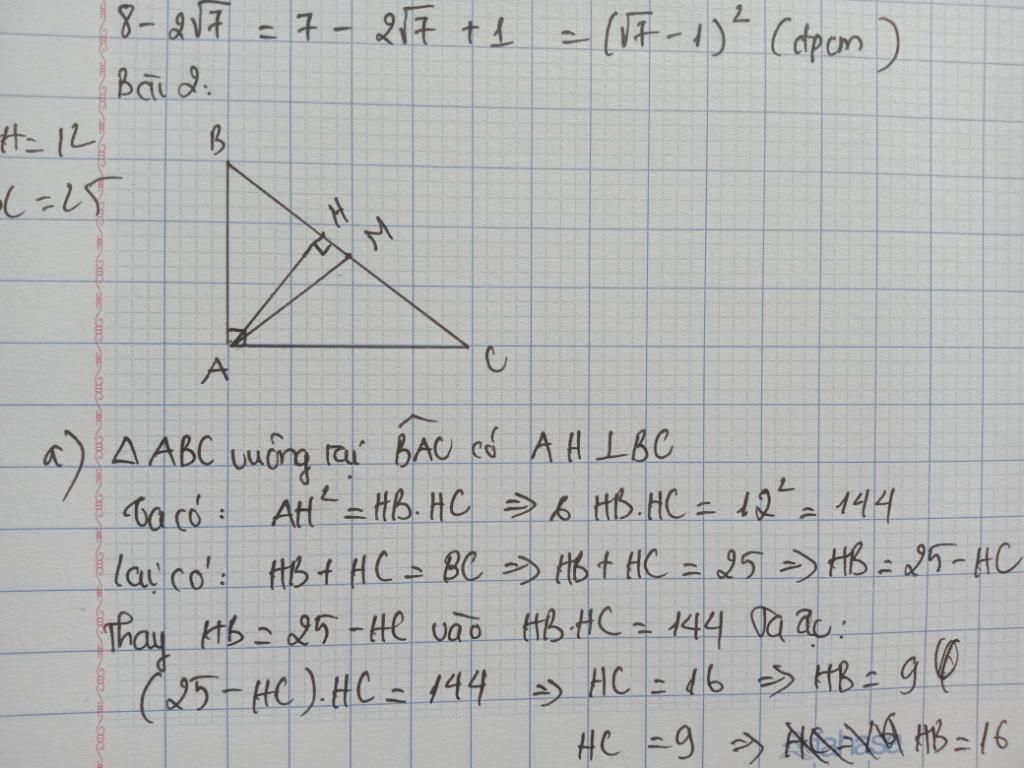 8 - 2√7 = 7 - 2√7 + 1 = (√7 - 1)² (đpcm)
Bài 2:
H = 12
C = 25
B
H
M
A
C
a) △ABC vuông tại BAC có AH ⊥ BC
Ta có: AH² = HB.HC ⇒ HB.HC = 12² = 144
lại có: HB + HC = BC ⇒ HB + HC = 25 ⇒ HB = 25 - HC
Thay HB = 25 - HC vào HB.HC = 144 Ta đc:
(25 - HC).HC = 144 ⇒ HC = 16 ⇒ HB = 9
HC = 9 ⇒ HB = 16